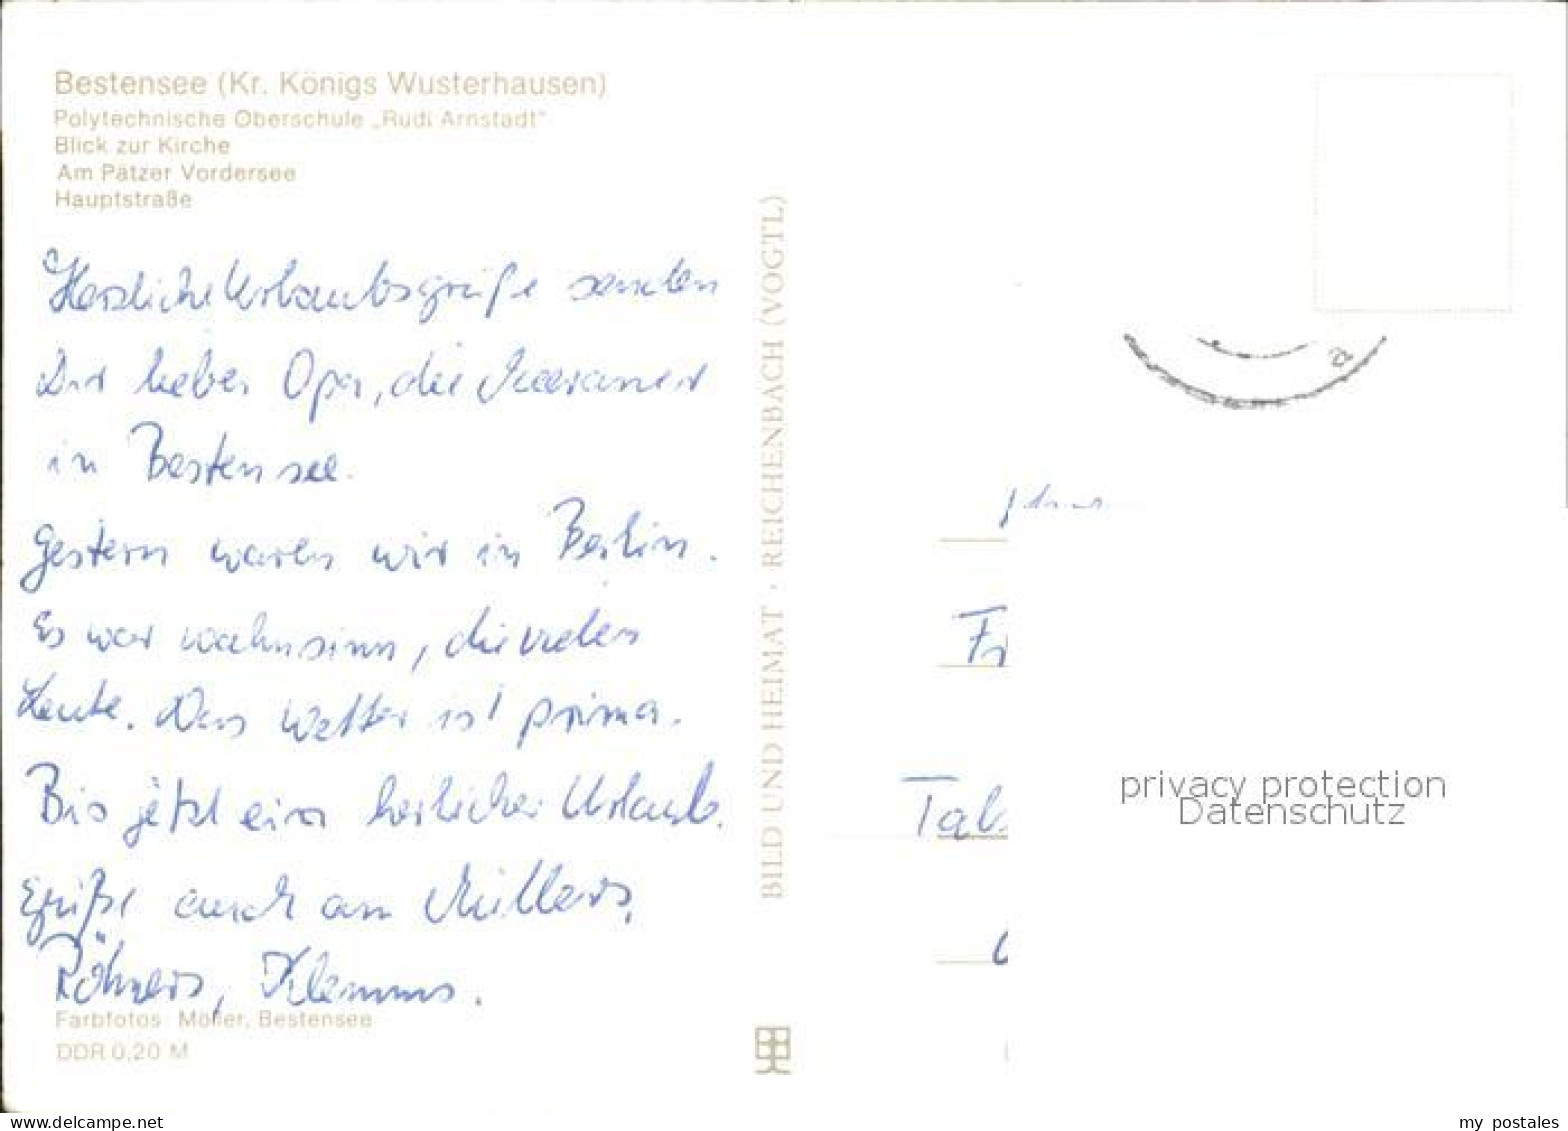 Bestensee (Kr. Königs Wusterhausen)
Polytechnische Oberschule „Rudi Arnstadt"
Blick zur Kirche
Am Pätzer Vordersee
Hauptstraße
Herzliche Urlaubsgrüße senden
Dir lieber Opa, die
in Bestensee.
Gestern waren wir in Berlin.
Es war wahnsinn, die vielen
Leute. Das Wetter ist prima.
Bis jetzt ein herlicher Urlaub.
Grüße auch an Müllers,
Röhners, Klemms.
Farbfotos: Möller, Bestensee
DDR 0,20 M
BILD UND HEIMAT · REICHENBACH (VOGTL)
a
Fr
Tal
privacy protection
Datenschutz
www.delcampe.net
my_postales